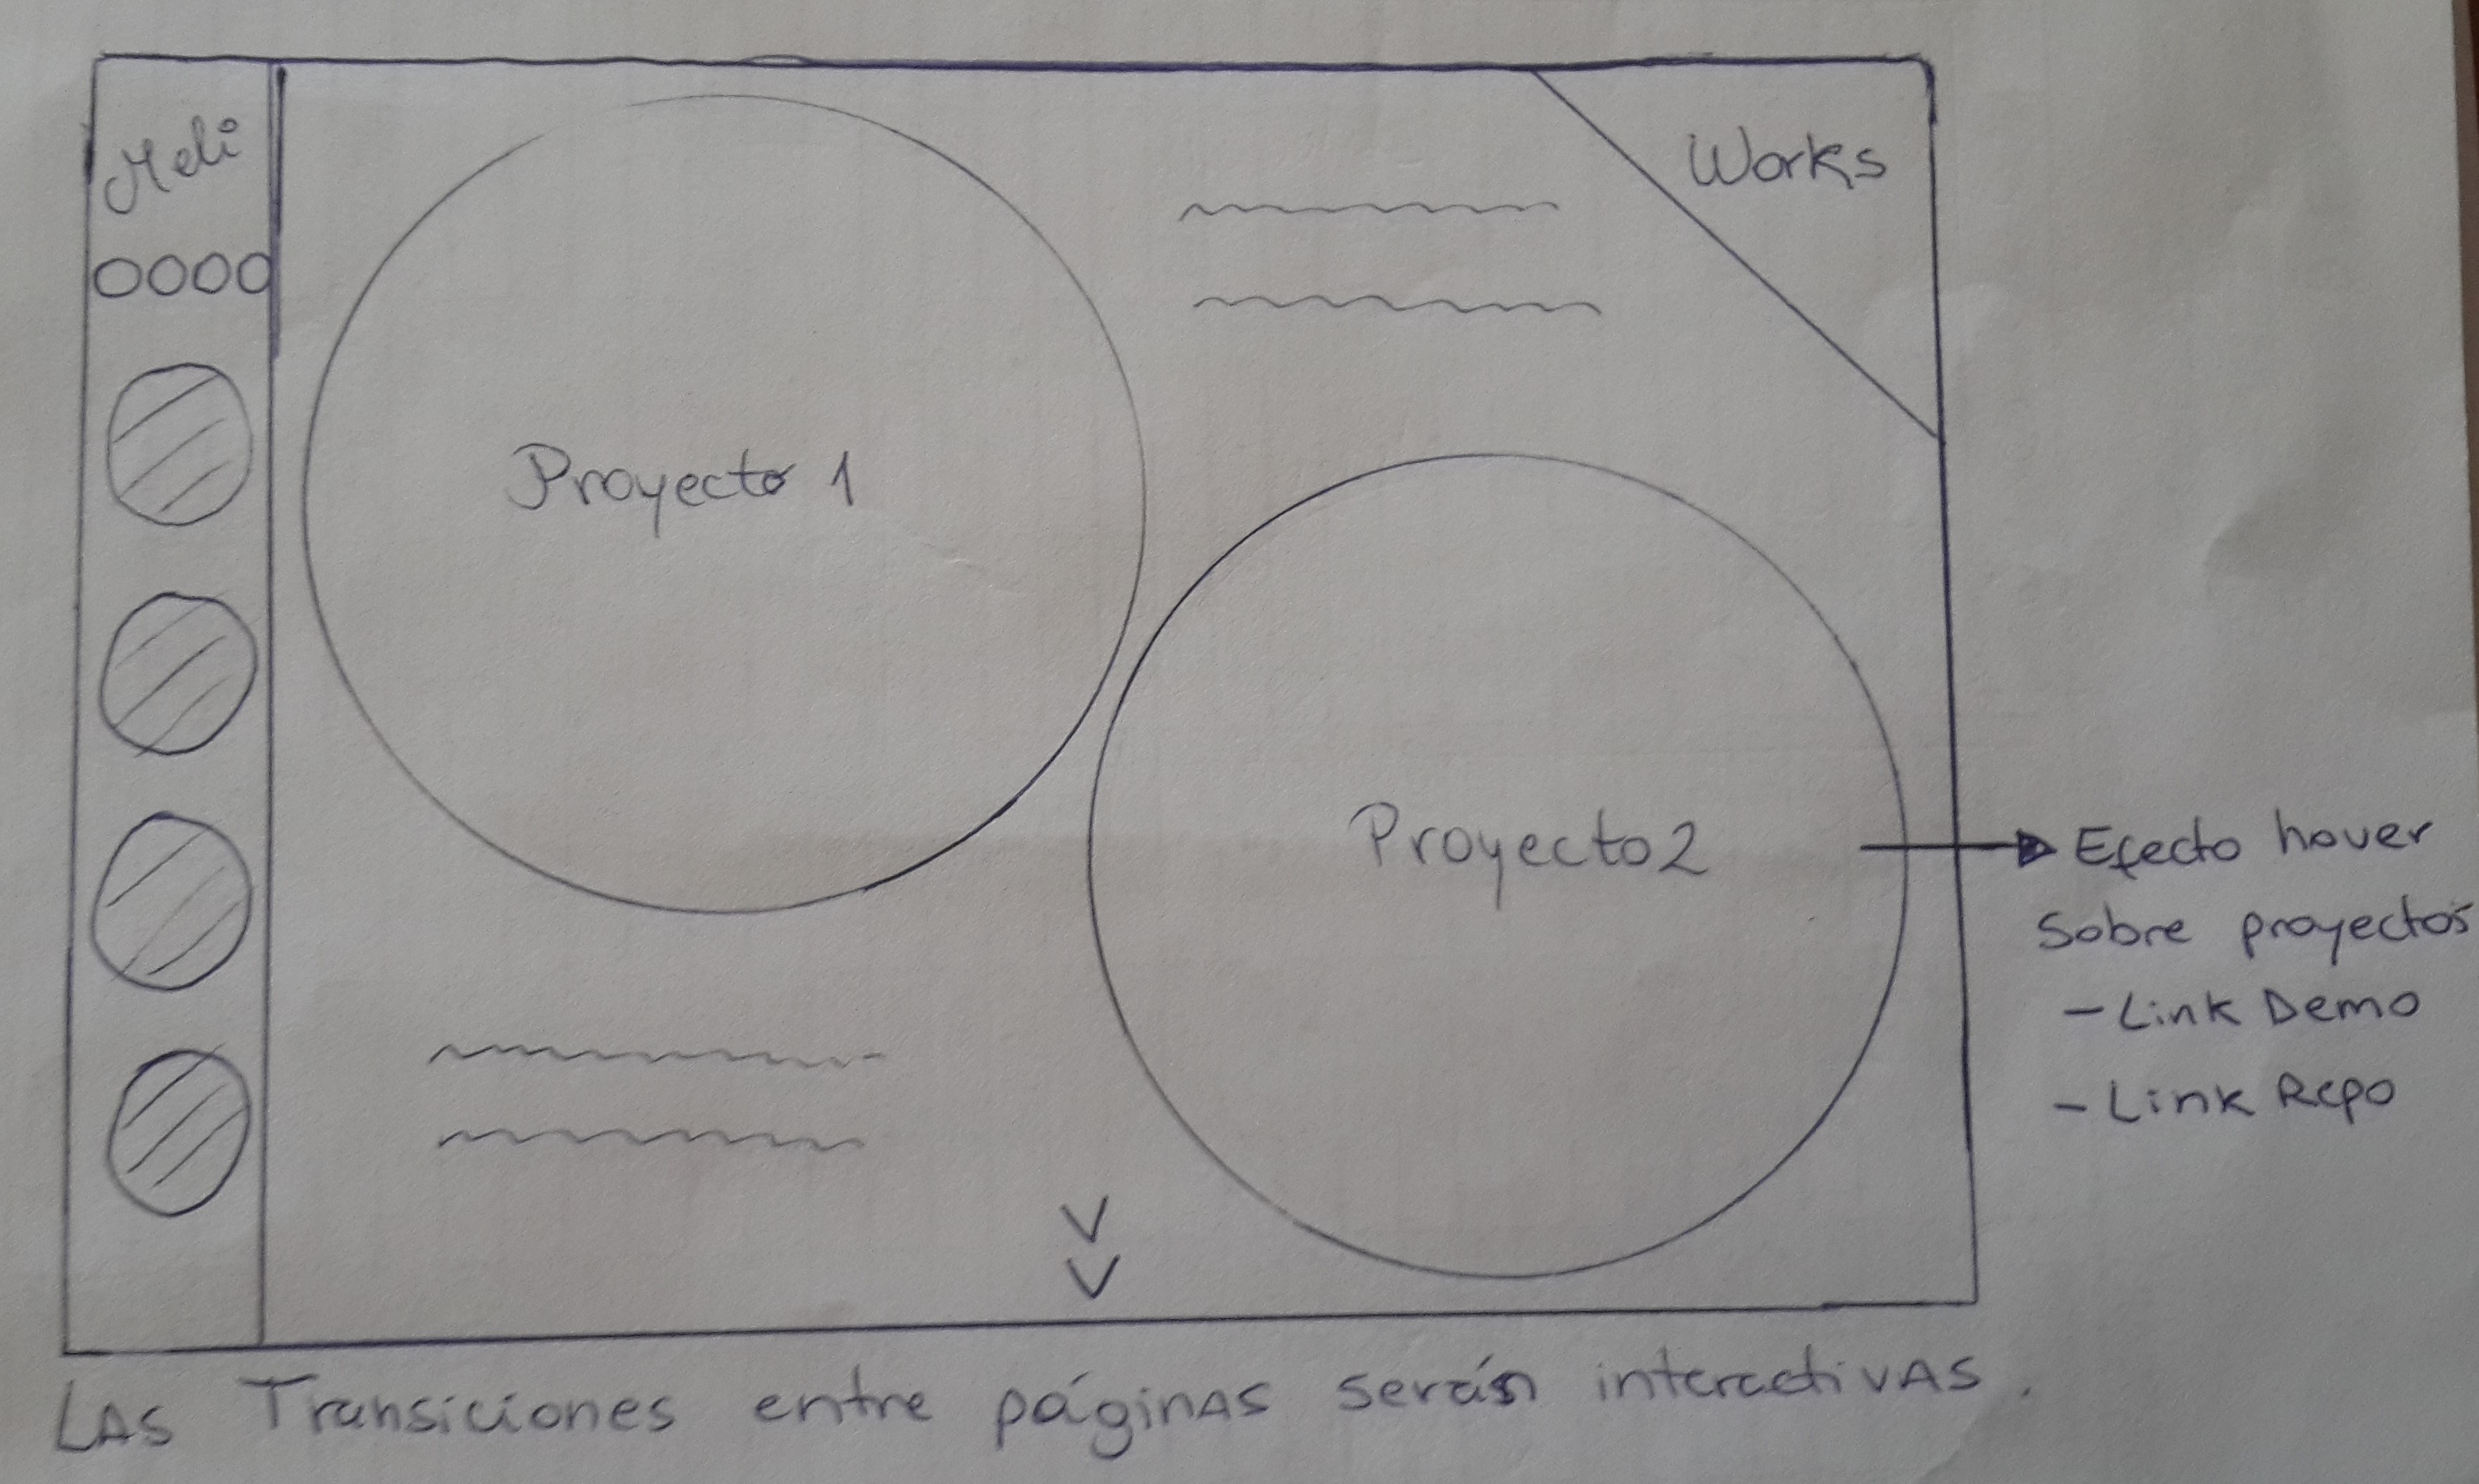 Meli
Works
Proyecto 1
Proyecto 2
Efecto hover
Sobre proyectos
- Link Demo
- Link Repo
LAS Transiciones entre páginAS serán interactivAS.